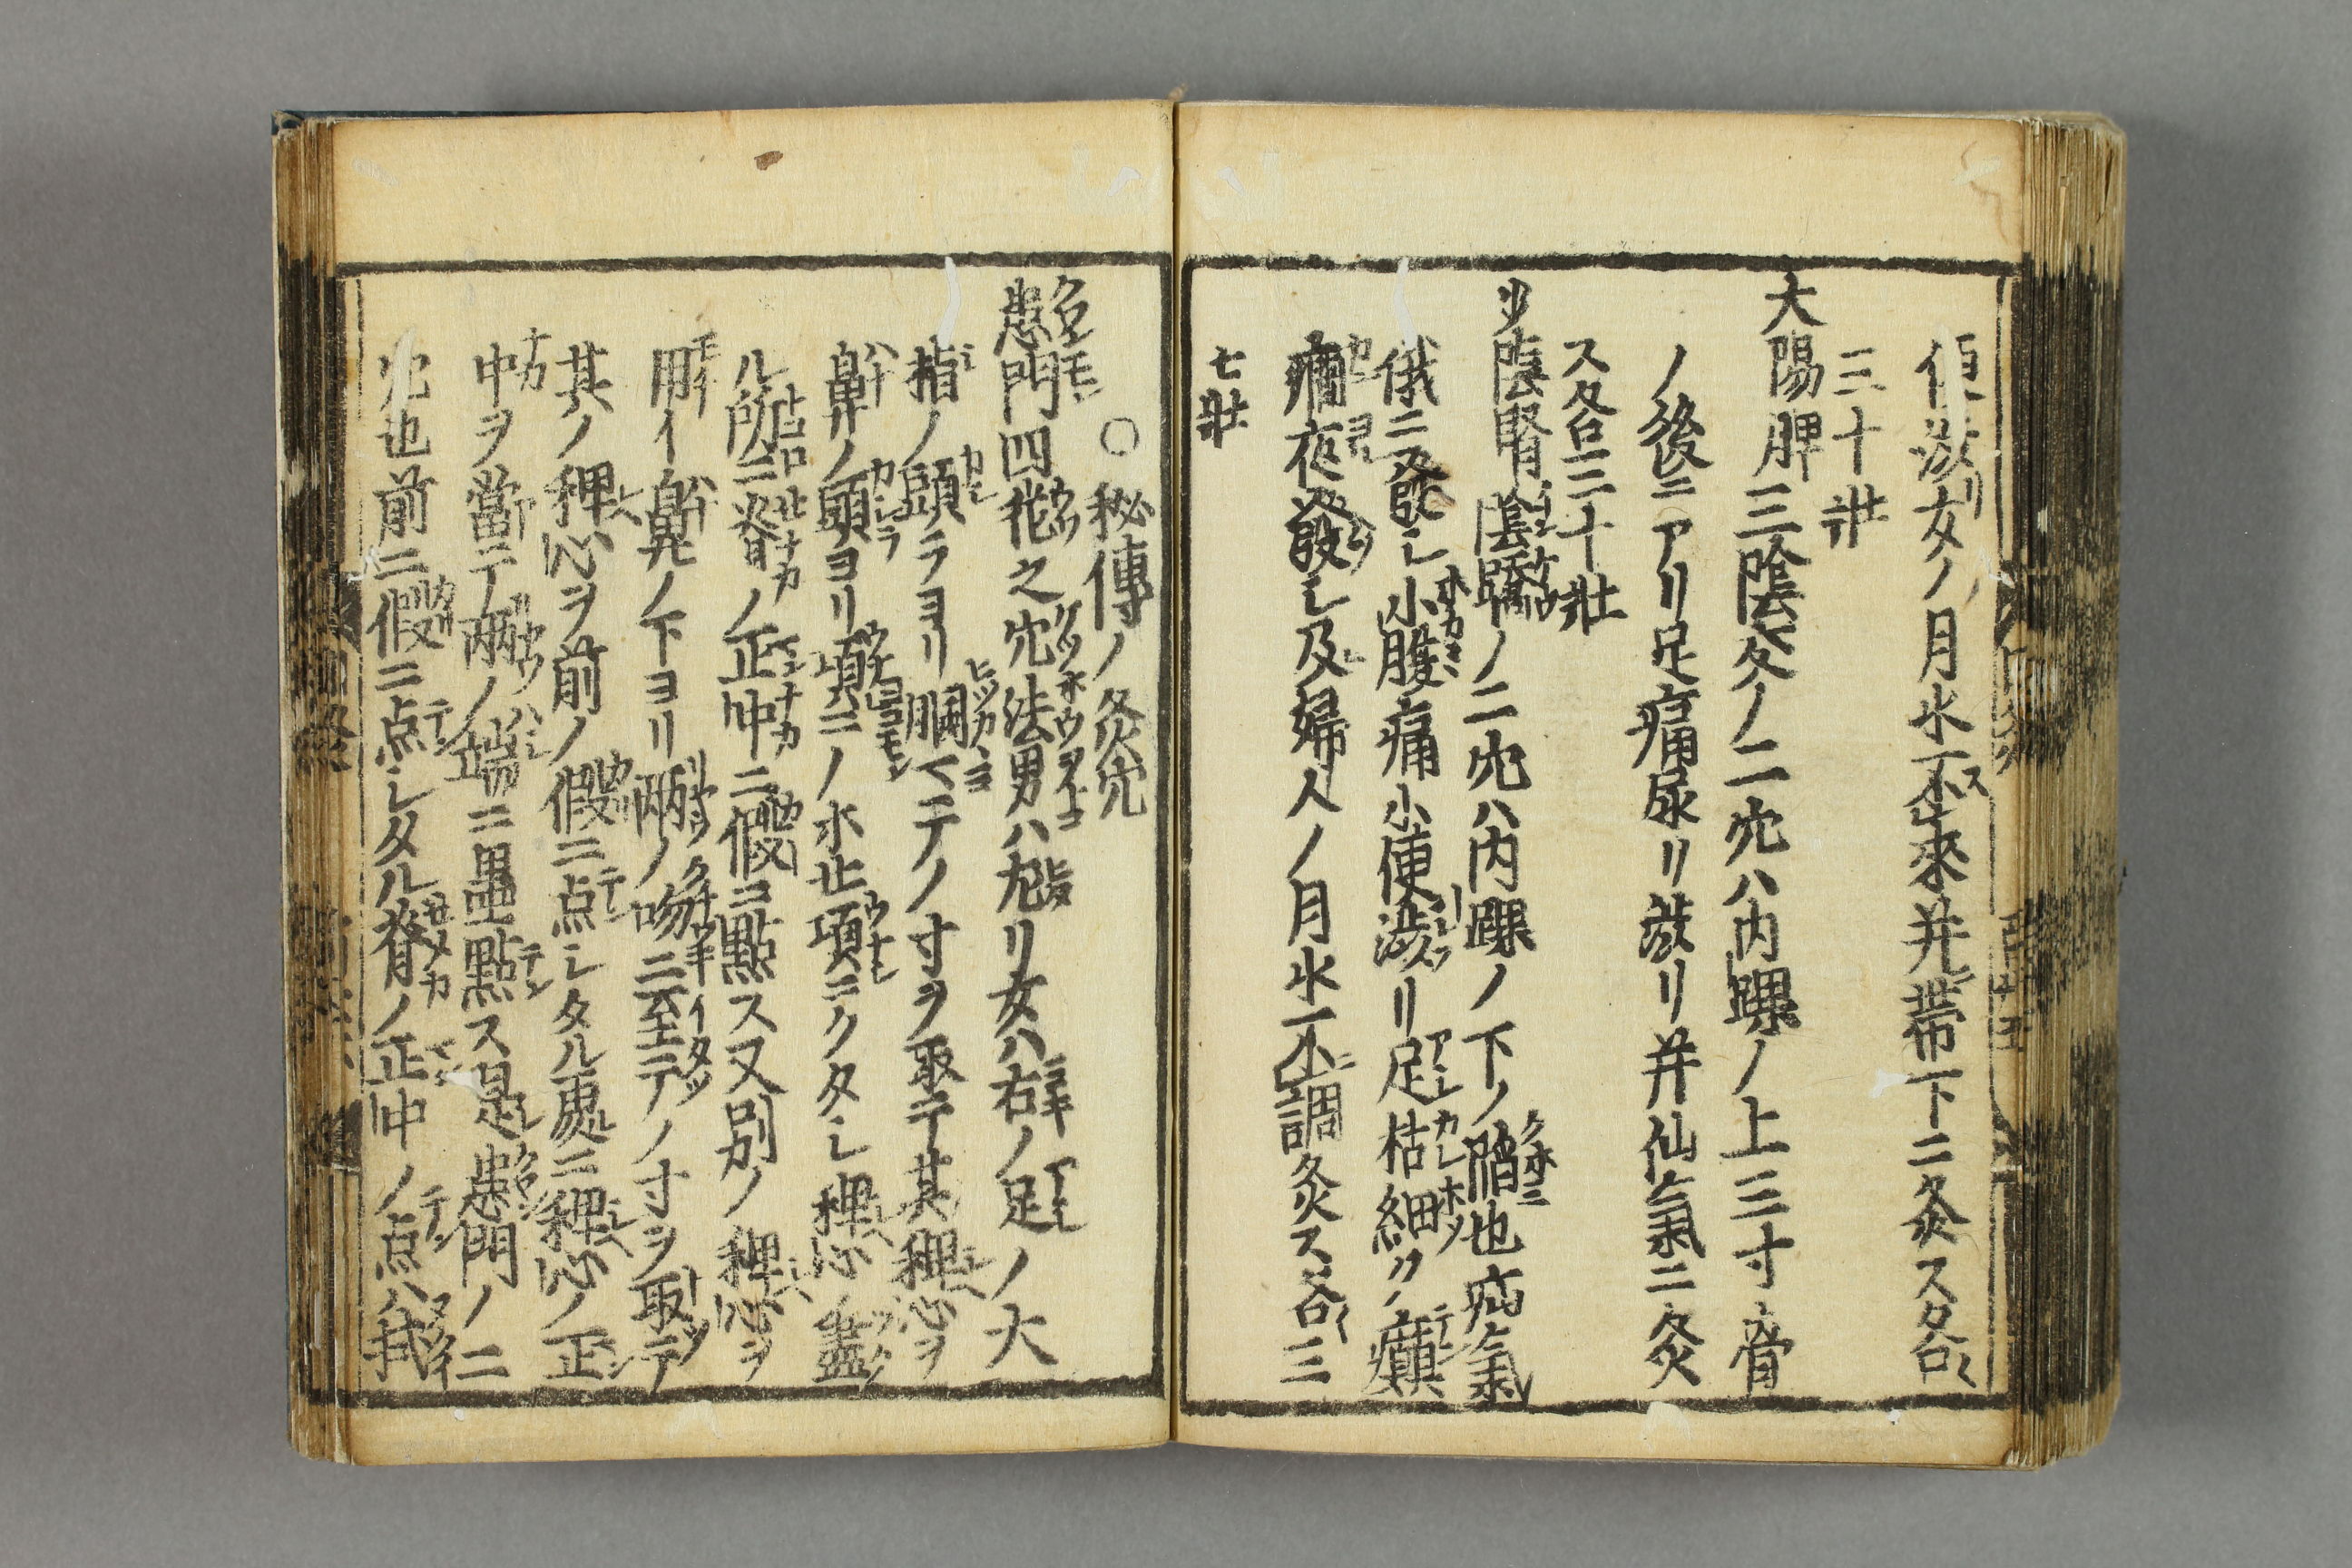 便澁女ノ月水不來并帶下ニ灸ス各〱
三十壯
大陽脾三陰交ノ二穴ハ内踝ノ上三寸骨
ノ後ニアリ足痛尿リ澁リ并仙氣ニ灸
ス各三十壯
少陰腎陰蹻ノ二穴ハ内踝ノ下ノ䐜也疝氣
俄ニ發シ小腹痛小便澁リ足枯細ク癲
癇夜發シ及婦人ノ月水不調灸ス各〱三
七壯
○秘傳ノ灸穴
患門四花之穴法男ハ左リ女ハ右ノ足ノ大
指ノ頭ラヨリ膕マテノ寸ヲ取テ其稗心ヲ
鼻ノ頭ヨリ項ニノホせ項ニクタシ稗心ノ盡
ル所ニ脊ノ正中ニ假ニ點ス又別ノ稗心ヲ
用イ鼻ノ下ヨリ兩ノ吻ニ至テノ寸ヲ取テ
其ノ稗心ヲ前ノ假ニ点シタル處ニ稗心ノ正
中ヲ當テ兩ノ端ニ墨點ス是患門ノ二
穴也前ニ假ニ点シタル脊ノ正中ノ点ハ拭